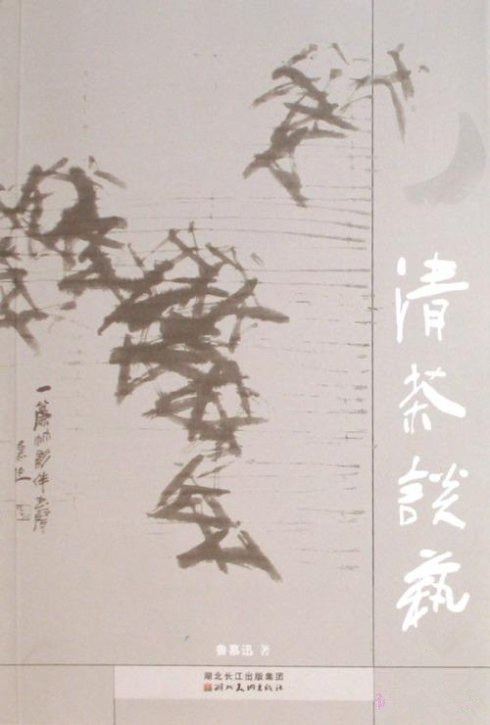 清茶談藝
一簾竹影伴
慕迅
鲁慕迅 著
湖北长江出版集团
湖北美术出版社